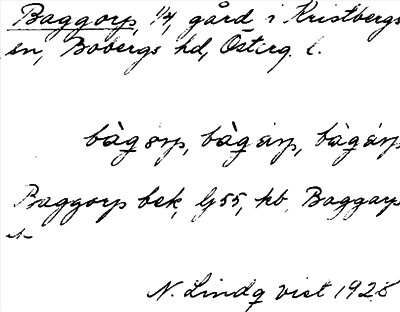 Baggorp, 1/4, gård i Kristbergs
en, Bobergs hd, Österg. l.
bàg orp, bàg årp, bàg årp
Baggorp bek, kb, Baggarp
N. Lindqvist 1928